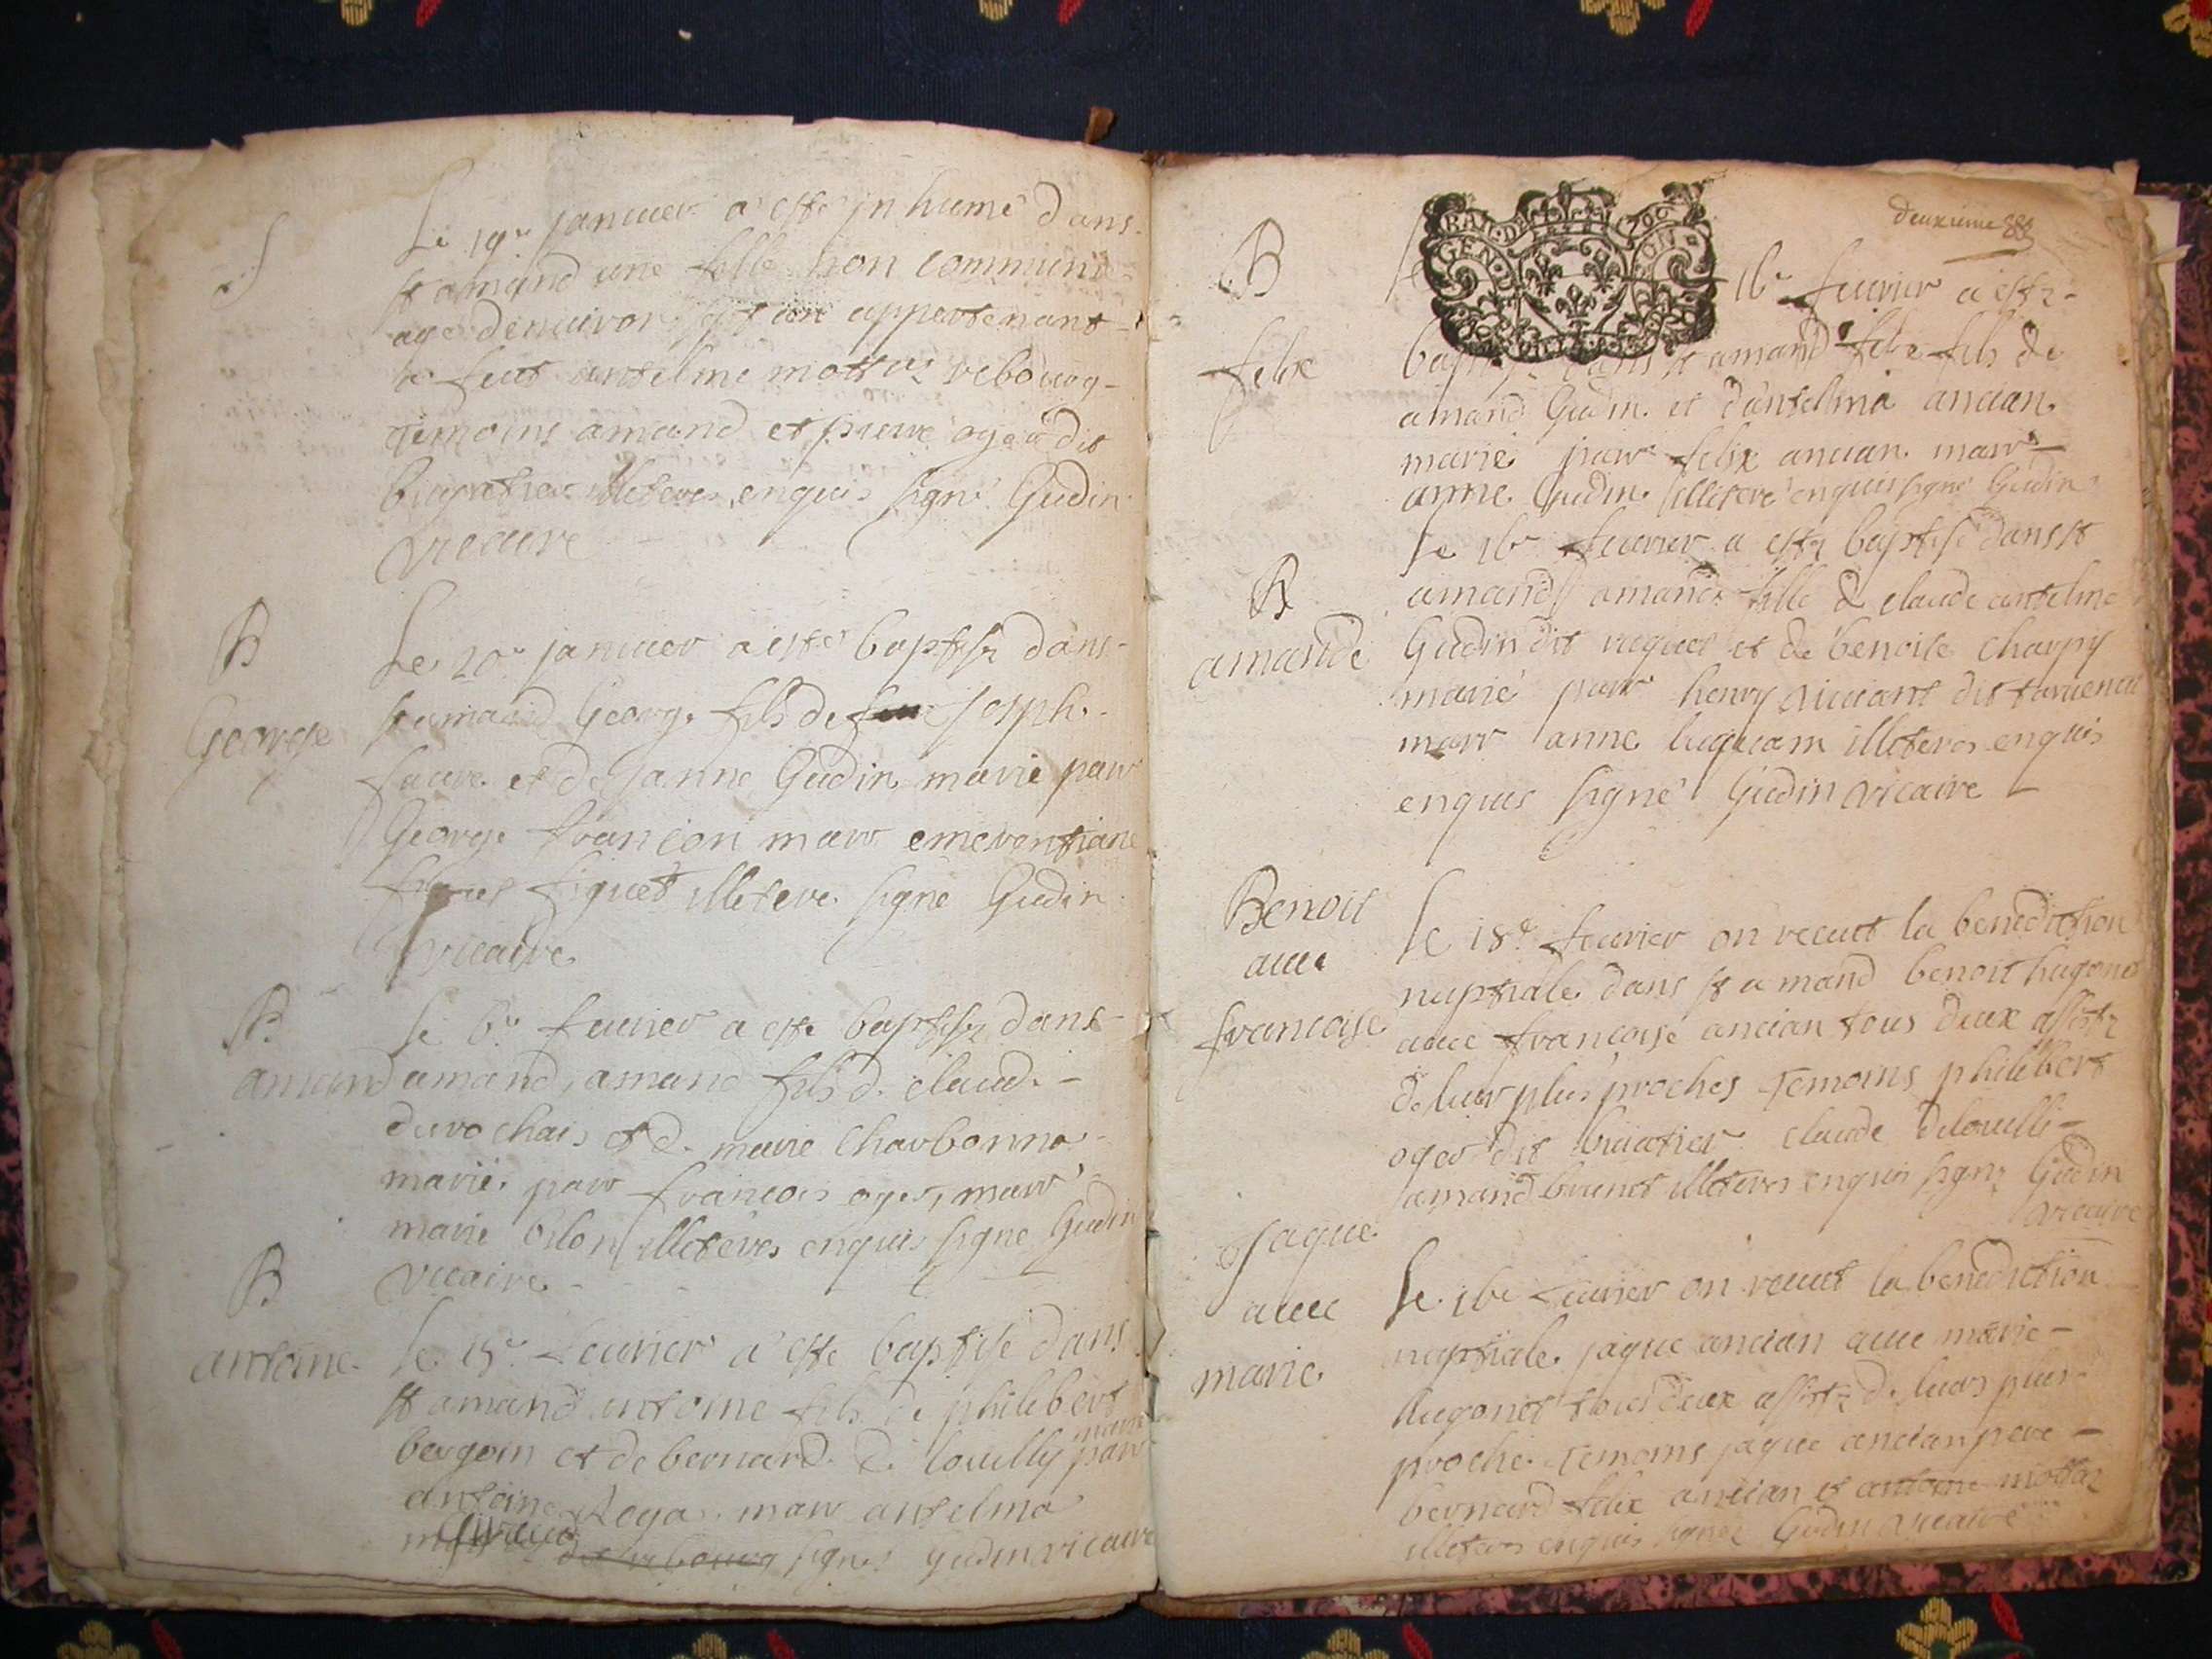 S
Le 19e januier a esté jnhumé dans
st amand une fille non communié
agé denuiron sept an appartenant
a feut antelme mottaz rebourg
temoins amand et pierre oger dit
illeteres enquis signé Gudin
vicaire
B
George
Le 20e januier a esté baptisé dans
st amand George fils de joseph
faure et de janne Gudin marié parr
George françon marr emerentiane
fiquet illetere signé Gudin
vicaire
B
amand
le 6e feurier a esté baptisé dans
amand, amand fils de claude
durochais et de marie charbonna
marié parr francois oger, marr
marie bilon illeteres enquis signé Gudin
vicaire
B
antoine
le 15e feurier a esté baptisé dans
st amand antoine fils de philibert
bergoin et de bernarde de louilly marié parr
antoine Roga marr antelma
signé gudin vicaire
deuxieme
GEN
B
felix
le 16e feurier a esté
baptisé dans st amand felix fils de
amand Gudin et d'antelma ancian
marié parr felix ancian marr
anne Gudin illetere enquis signé Gudin
B
amande
le 16e feurier a esté baptisé dans st
amand amande fille de claude antelme
Gudin dit et de benoite charpy
marié parr henry dit
marr anne illeteres enquis
enquis signé Gudin vicaire
Benoit
auec
francoise
le 18e feurier on receut la benediction
nuptiale dans st amand benoit hugonet
auec francoise ancian tous deux assisté
de leur plus proches temoins philibert
oger dit claude delouilli
amand brunet illeteres enquis signé Gudin
vicaire
Jaque
auec
marie
le 16e feurier on receut la benediction
nuptiale jaque ancian auec marie
hugonet tous deux assisté de leurs plus
proche temoins jaque ancian pere
bernard felix ancian et antoine mottaz
illeteres enquis signé Gudin vicaire